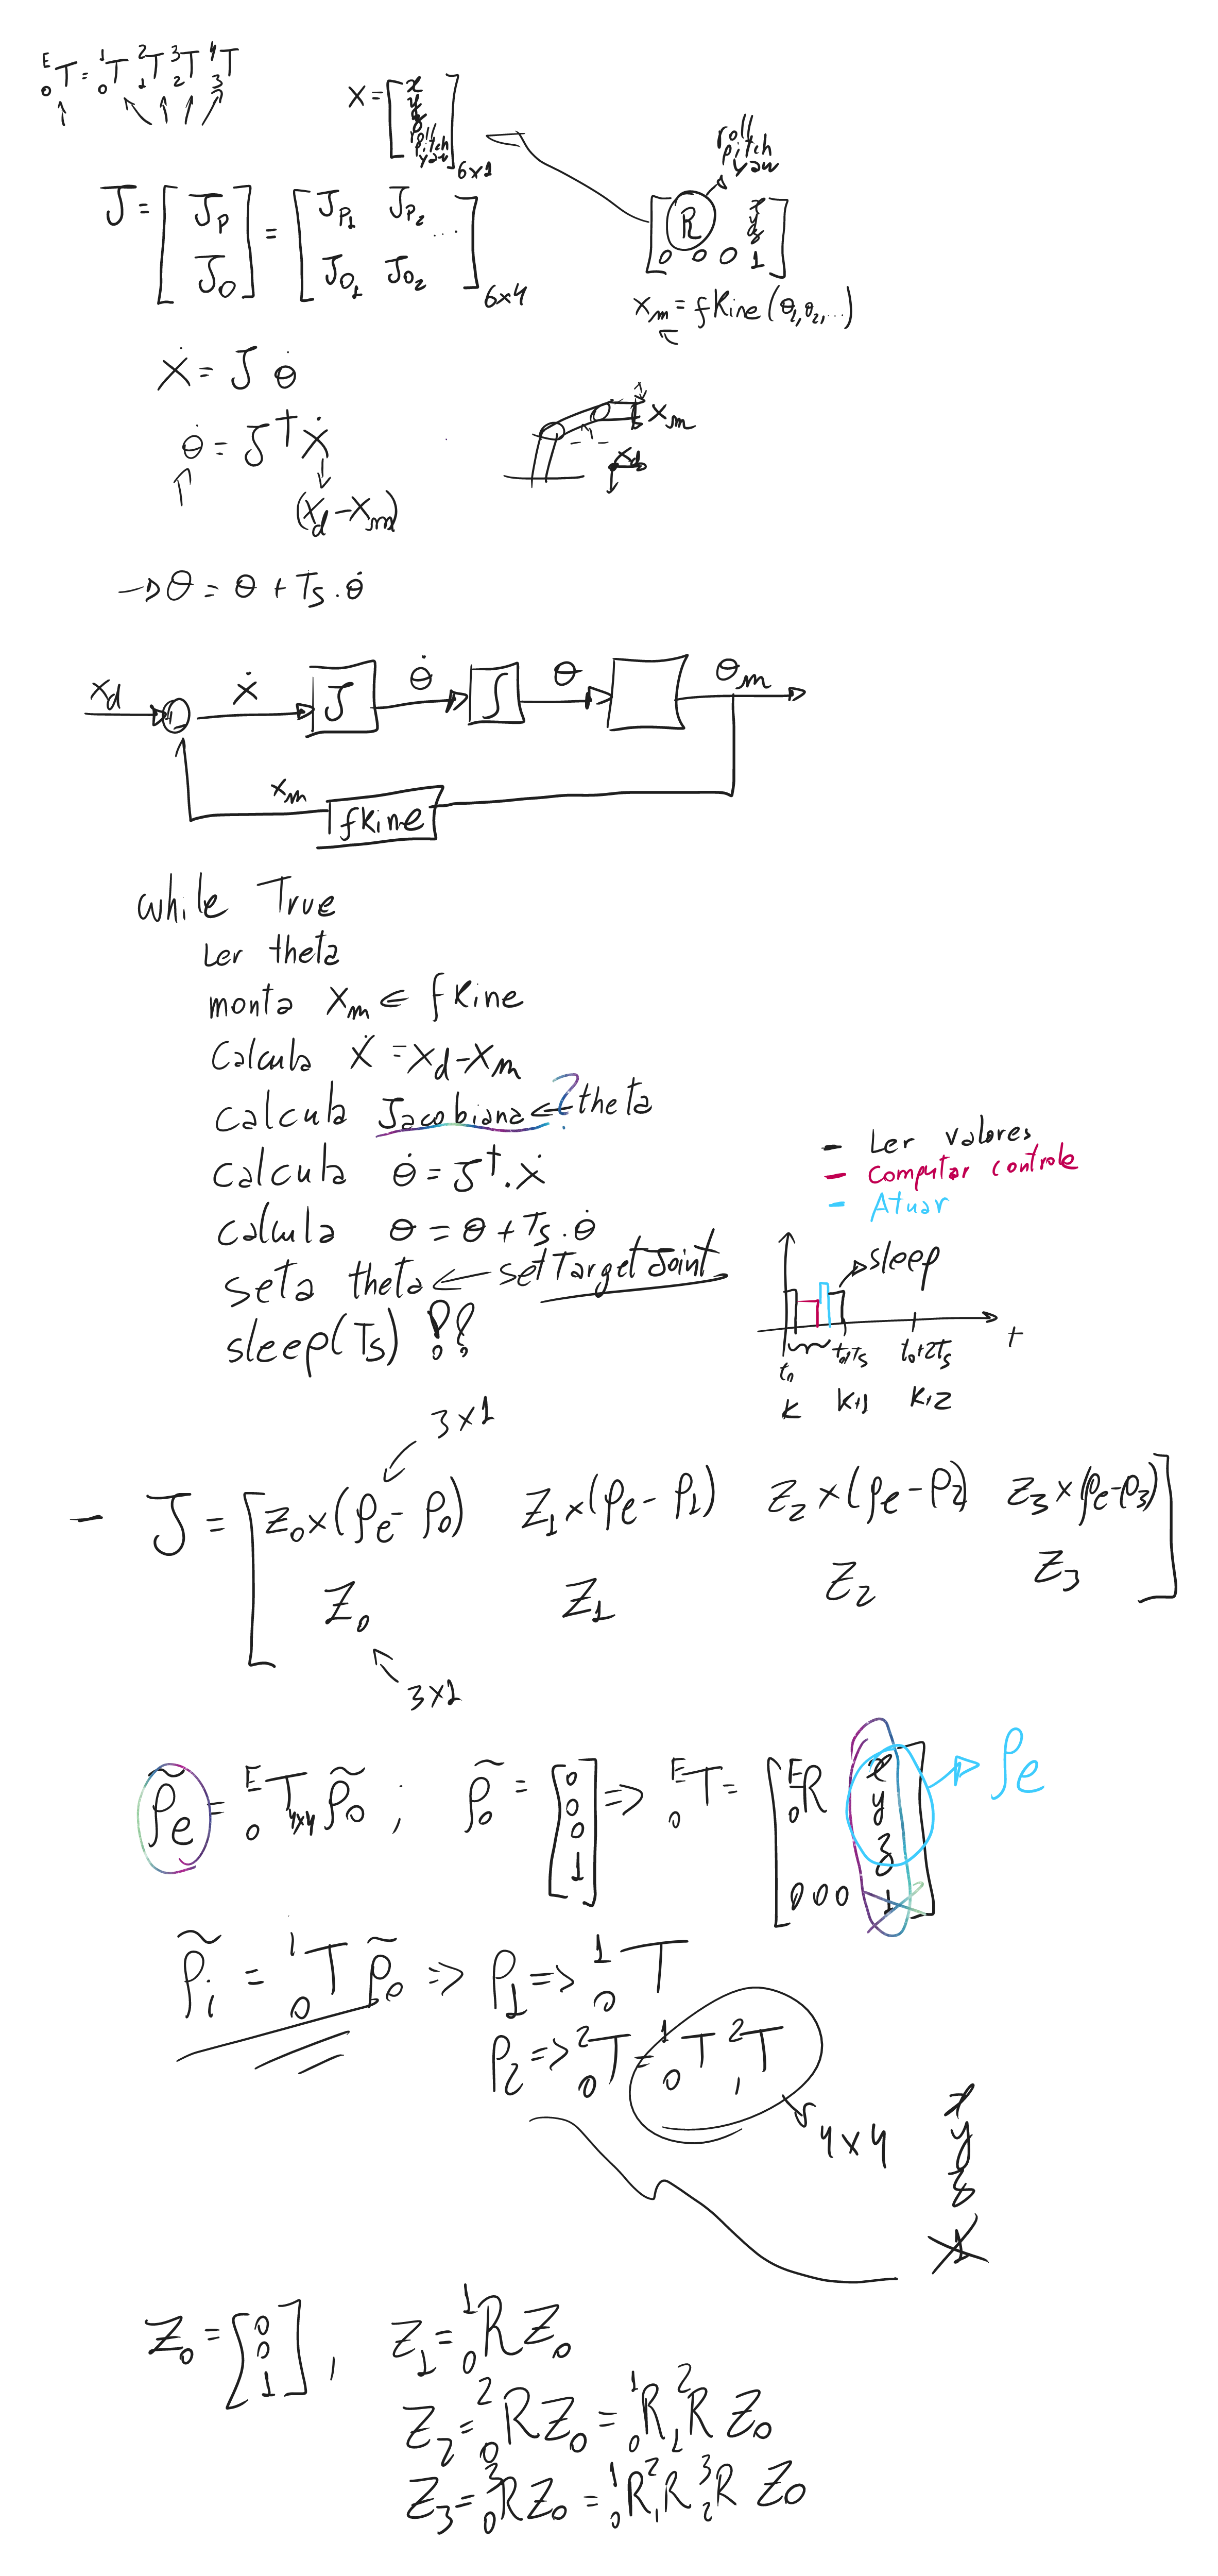 E 0 T = 1 0 T 2 1 T 3 2 T 4 3 T
X = [x y z roll pitch yaw] 6x1
roll
pitch
yaw
[R x y z
0 0 0 1]
J = [J_P J_O] = [J_P1 J_P2 ...
J_O1 J_O2] 6x4
x_m = fkine(θ1, θ2, ...)
Ẋ = J θ̇
θ̇ = J† Ẋ
(x_d - x_m)
x_m
x_d
→ θ = θ + Ts . θ̇
x_d ẋ J θ̇ ∫ θ θ_m
x_m
fkine
while True
Ler theta
monta x_m ⇐ fkine
Calcula Ẋ = x_d - x_m
calcula Jacobiana ⇐ ? theta
calcula θ̇ = J† . ẋ
calcula θ = θ + Ts . θ̇
seta theta ← setTargetJoint
sleep(Ts) !!
- Ler valores
- Computar controle
- Atuar
sleep
t0 t0+Ts t0+2Ts t
K K+1 K+2
3x1
- J = [z0 x (ρe - ρ0) z1 x (ρe - ρ1) z2 x (ρe - ρ2) z3 x (ρe - ρ3)
z0 z1 z2 z3]
3x1
ρ̃e = E 0 T 4x4 ρ̃0 ; ρ̃0 = [0 0 0 1] => E 0 T = [E 0 R x y z
0 0 0 1] ρe
ρ̃i = 1 0 T ρ̃0 => ρ1 => 1 0 T
ρ2 => 2 0 T = 1 0 T 2 1 T
4x4
x
y
z
1
z0 = [0 0 1] , z1 = 1 0 R z0
z2 = 2 0 R z0 = 1 0 R 2 1 R z0
z3 = 3 0 R z0 = 1 0 R 2 1 R 3 2 R z0